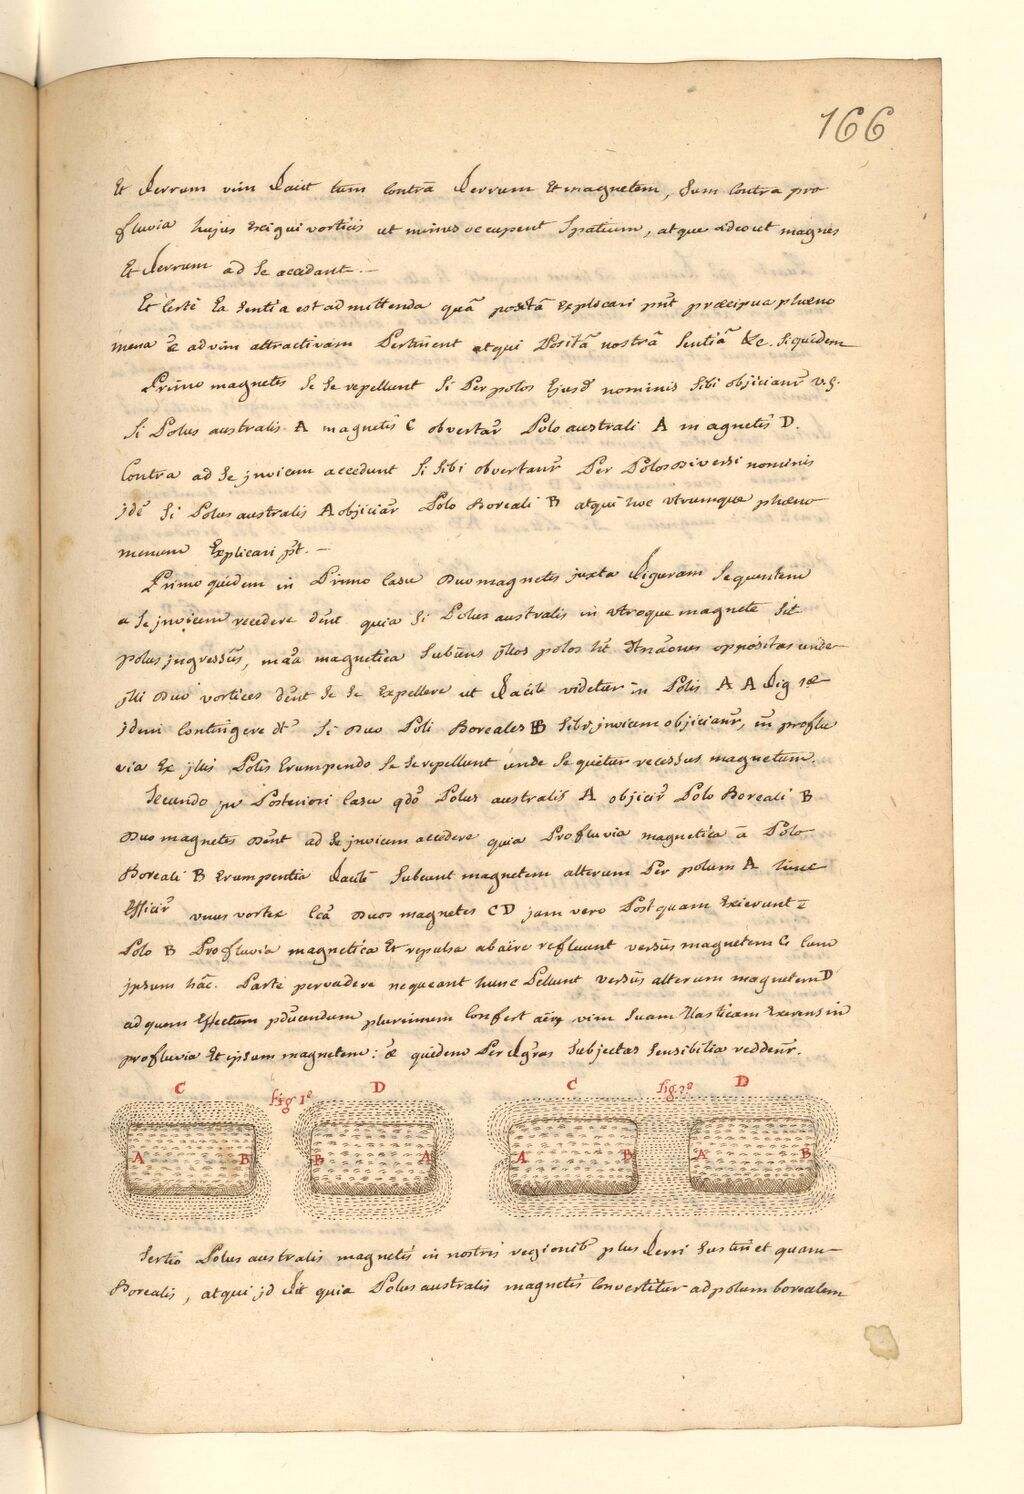 166
Et ferrum vim facit tum contrā ferrum Et magnetem, tum contra pro
fluvia hujus Exigui vorticis ut minus occupent Spatium, atque adeo ut magnes
Et ferrum ad se accedant. -
Et certè Ea Sentia est admittenda quā positā Explicari pnt præcipua phæno
mena ad vim attractivam Pertinent atqui Positā nostrā Sentiā &c. Siquidem
Primo magnetes se se repellunt Si Per polos Ejusd nominis sibi objiciantr v.g.
Si Polus australis A magnetis C obvertar Polo australi A magnetis D.
Contra ad se jnvicem accedunt Si Sibi obvertantr Per Polos Diversi nominis
jdē Si Polus australis A objiciar Polo Boreali B atqui hoc Vtrumque phæno
menum Explicari pt. -
Primo quidem in Primo Casu Duo magnetes juxta figuram Sequentem
a se jnvicem recedere dent quia Si Polus australis in Vtroque magnete Sit
polus jngressus, māa magnetica Subiens jllos polos ht opositas unde
jlli Duo vortices dent se se Expellere ut facile videtur in Polis A A fig 1æ
jdem Contingere dt Si Duo Poli Boreales B Sibi jnvicem objiciantr, proflu
via Ex jllis Polis Erumpendo se se repellunt unde sequitur recessus magnetum.
Secundo jn Posteriori Casu qdo Polus australis A objicir Polo Boreali B
Duo magnetes Dent ad se jnvicem accedere quia Profluvia magnetica ā Polo
Boreali B Erumpentia facile Subeunt magnetem alterum Per polum A hinc
Efficir vnus vortex Duos magnetes C D jam vero Postquam Exierunt ē
Polo B Profluvia magnetica Et repulsa ab aëre refluunt versus magnetem C Cum
jpsum hāc Parte pervadere nequeant hunc Pellunt versus alterum magnetem D
ad quem Effectum pducendum plurimum Confert aer vim Suam Elasticam Exerens in
profluvia Et ipsum magnetem: quidem Per figras Subjectas Sensibilia reddentr.
C fig 1a D C fig. 2a D
A B B A A B A B
Tertio Polus australis magnetis in nostris regionib plus ferri Sustinet quam
Borealis, atqui jd fit quia Polus australis magnetis Convertitur ad polum borealem